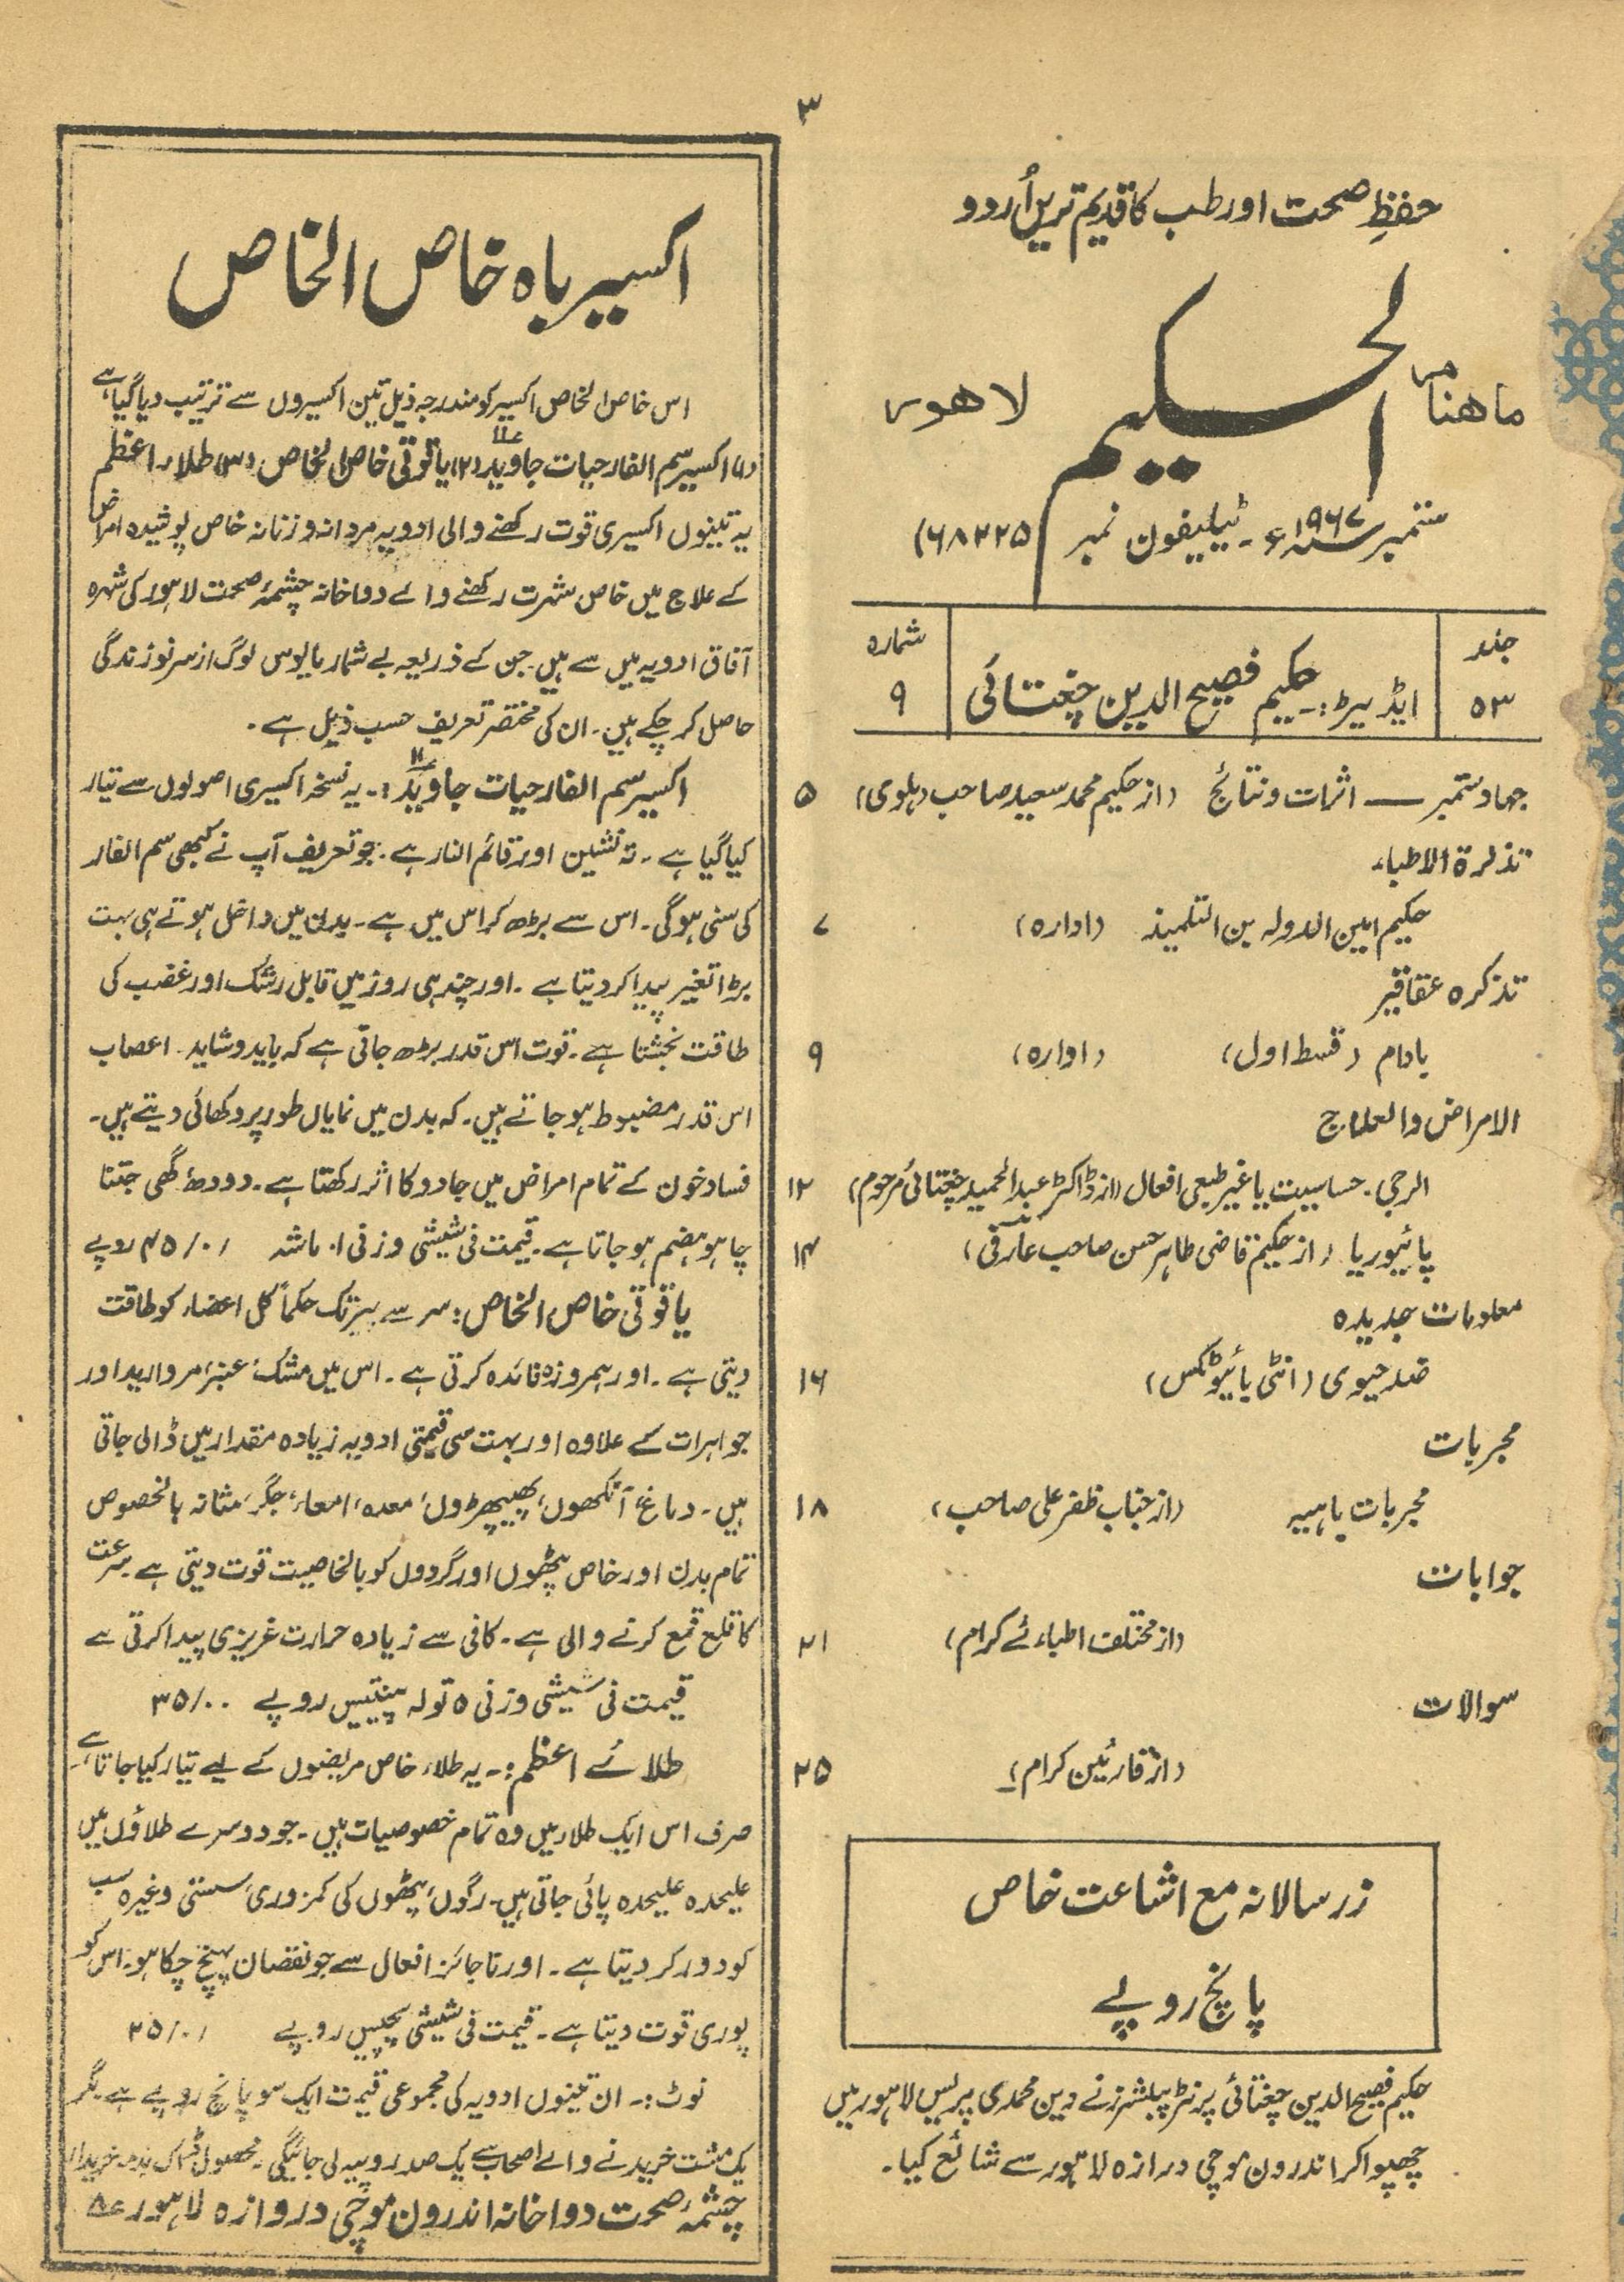 ۳
حفظِ صحت اور طب کا قدیم ترین اُردو
ماهنامہ الحکیم لاهور
ستمبر سنہ ۱۹۶۷ء ۔ ٹیلیفون نمبر (۶۸۲۲۵)
جلد ۵۳
ایڈیٹر:۔ حکیم فصیح الدین چغتائی
شمارہ ۹
جہاد ستمبر — اثرات ونتائج (از حکیم محمد سعید صاحب دہلوی) ۵
تذکرۃ الاطباء
حکیم امین الدولہ بن التلمیذ (ادارہ) ۷
تذکرہ عقاقیر
بادام (قسط اول) (ادارہ) ۹
الامراض والعلاج
الرجی۔ حساسیت یا غیر طبعی افعال (از ڈاکٹر عبدالحمید چغتائی مرحوم) ۱۲
پائیوریا (از حکیم قاضی طاہر حسن صاحب عارفی) ۱۴
معلومات جدیدہ
ضد حیوی (انٹی بائیوٹکس) ۱۶
مجربات
مجربات باہیہ (از جناب ظفر علی صاحب) ۱۸
جوابات
(از مختلف اطبائے کرام) ۲۱
سوالات
(از قارئین کرام) ۲۵
زر سالانہ مع اشاعت خاص
پانچ روپے
حکیم فصیح الدین چغتائی پرنٹر پبلشرز نے دین محمدی پریس لاہور میں
چھپوا کر اندرون موچی دروازہ لاہور سے شائع کیا۔
اکسیر باہ خاص الخاص
اس خاص الخاص اکسیر کو مندرجہ ذیل تین اکسیروں سے ترتیب دیا گیا ہے
(۱) اکسیر سم الفار حیات جاوید (۲) یاقوتی خاص الخاص (۳) طلاء اعظم
یہ تینوں اکسیری قوت رکھنے والی ادویہ مردانہ و زنانہ خاص پوشیدہ امراض
کے علاج میں خاص شہرت رکھنے والے دواخانہ چشمۂ صحت لاہور کی شہرہ
آفاق ادویہ میں سے ہیں۔ جن کے ذریعہ بے شمار مایوس لوگ از سر نو زندگی
حاصل کر چکے ہیں۔ ان کی مختصر تعریف حسب ذیل ہے۔
اکسیر سم الفار حیات جاوید :۔ یہ نسخہ اکسیری اصولوں سے تیار
کیا گیا ہے۔ تہ نشین اور قائم النار ہے۔ جو تعریف آپ نے کبھی سم الفار
کی سنی ہوگی۔ اس سے بڑھ کر اس میں ہے۔ بدن میں داخل ہوتے ہی بہت
بڑا تغیر پیدا کر دیتا ہے۔ اور چند ہی روز میں قابل رشک اور غضب کی
طاقت بخشتا ہے۔ قوت اس قدر بڑھ جاتی ہے کہ باید و شاید۔ اعصاب
اس قدر مضبوط ہو جاتے ہیں۔ کہ بدن میں نمایاں طور پر دکھائی دیتے ہیں۔
فساد خون کے تمام امراض میں جادو کا اثر رکھتا ہے۔ دودھ گھی جتنا
چاہو ہضم ہو جاتا ہے۔ قیمت فی شیشی وزنی ۱۰ ماشہ ۴۵/۰۰ روپے
یاقوتی خاص الخاص: سر سے پیر تک حکماً کل اعضاء کو طاقت
دیتی ہے۔ اور ہمروزہ فائدہ کرتی ہے۔ اس میں مشک، عنبر، مروارید اور
جواہرات کے علاوہ اور بہت سی قیمتی ادویہ زیادہ مقدار میں ڈالی جاتی
ہیں۔ دماغ، آنکھوں، پھیپھڑوں، معدہ، امعاء، جگر، مثانہ بالخصوص
تمام بدن اور خاص پٹھوں اور گردوں کو بالخاصیت قوت دیتی ہے۔ سرعت
کا قلع قمع کرنے والی ہے۔ کافی سے زیادہ حرارت غریزی پیدا کرتی ہے
قیمت فی شیشی وزنی ۵ تولہ پینتیس روپے ۳۵/۰۰
طلائے اعظم :۔ یہ طلاء خاص مریضوں کے لیے تیار کیا جاتا ہے
صرف اس ایک طلاء میں وہ تمام خصوصیات ہیں۔ جو دوسرے طلاؤں میں
علیحدہ علیحدہ پائی جاتی ہیں۔ رگوں، پٹھوں کی کمزوری، سستی وغیرہ سب
کو دور کر دیتا ہے۔ اور ناجائز افعال سے جو نقصان پہنچ چکا ہو۔ اس کو
پوری قوت دیتا ہے۔ قیمت فی شیشی پچیس روپے ۲۵/۰۰
نوٹ:۔ ان تینوں ادویہ کی مجموعی قیمت ایک سو پانچ روپے ہے۔ مگر
یک مشت خریدنے والے اصحاب سے یک صد روپیہ لی جائیگی۔ محصول ڈاک بذمہ خریدار
چشمۂ صحت دواخانہ اندرون موچی دروازہ لاہور ۸